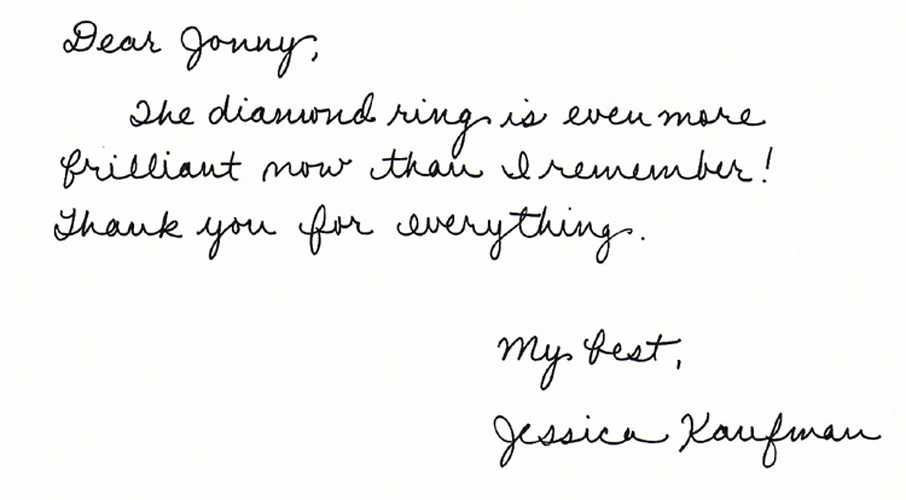 Dear Jonny,
The diamond ring is even more
brilliant now than I remember!
Thank you for everything.
My best,
Jessica Kaufman